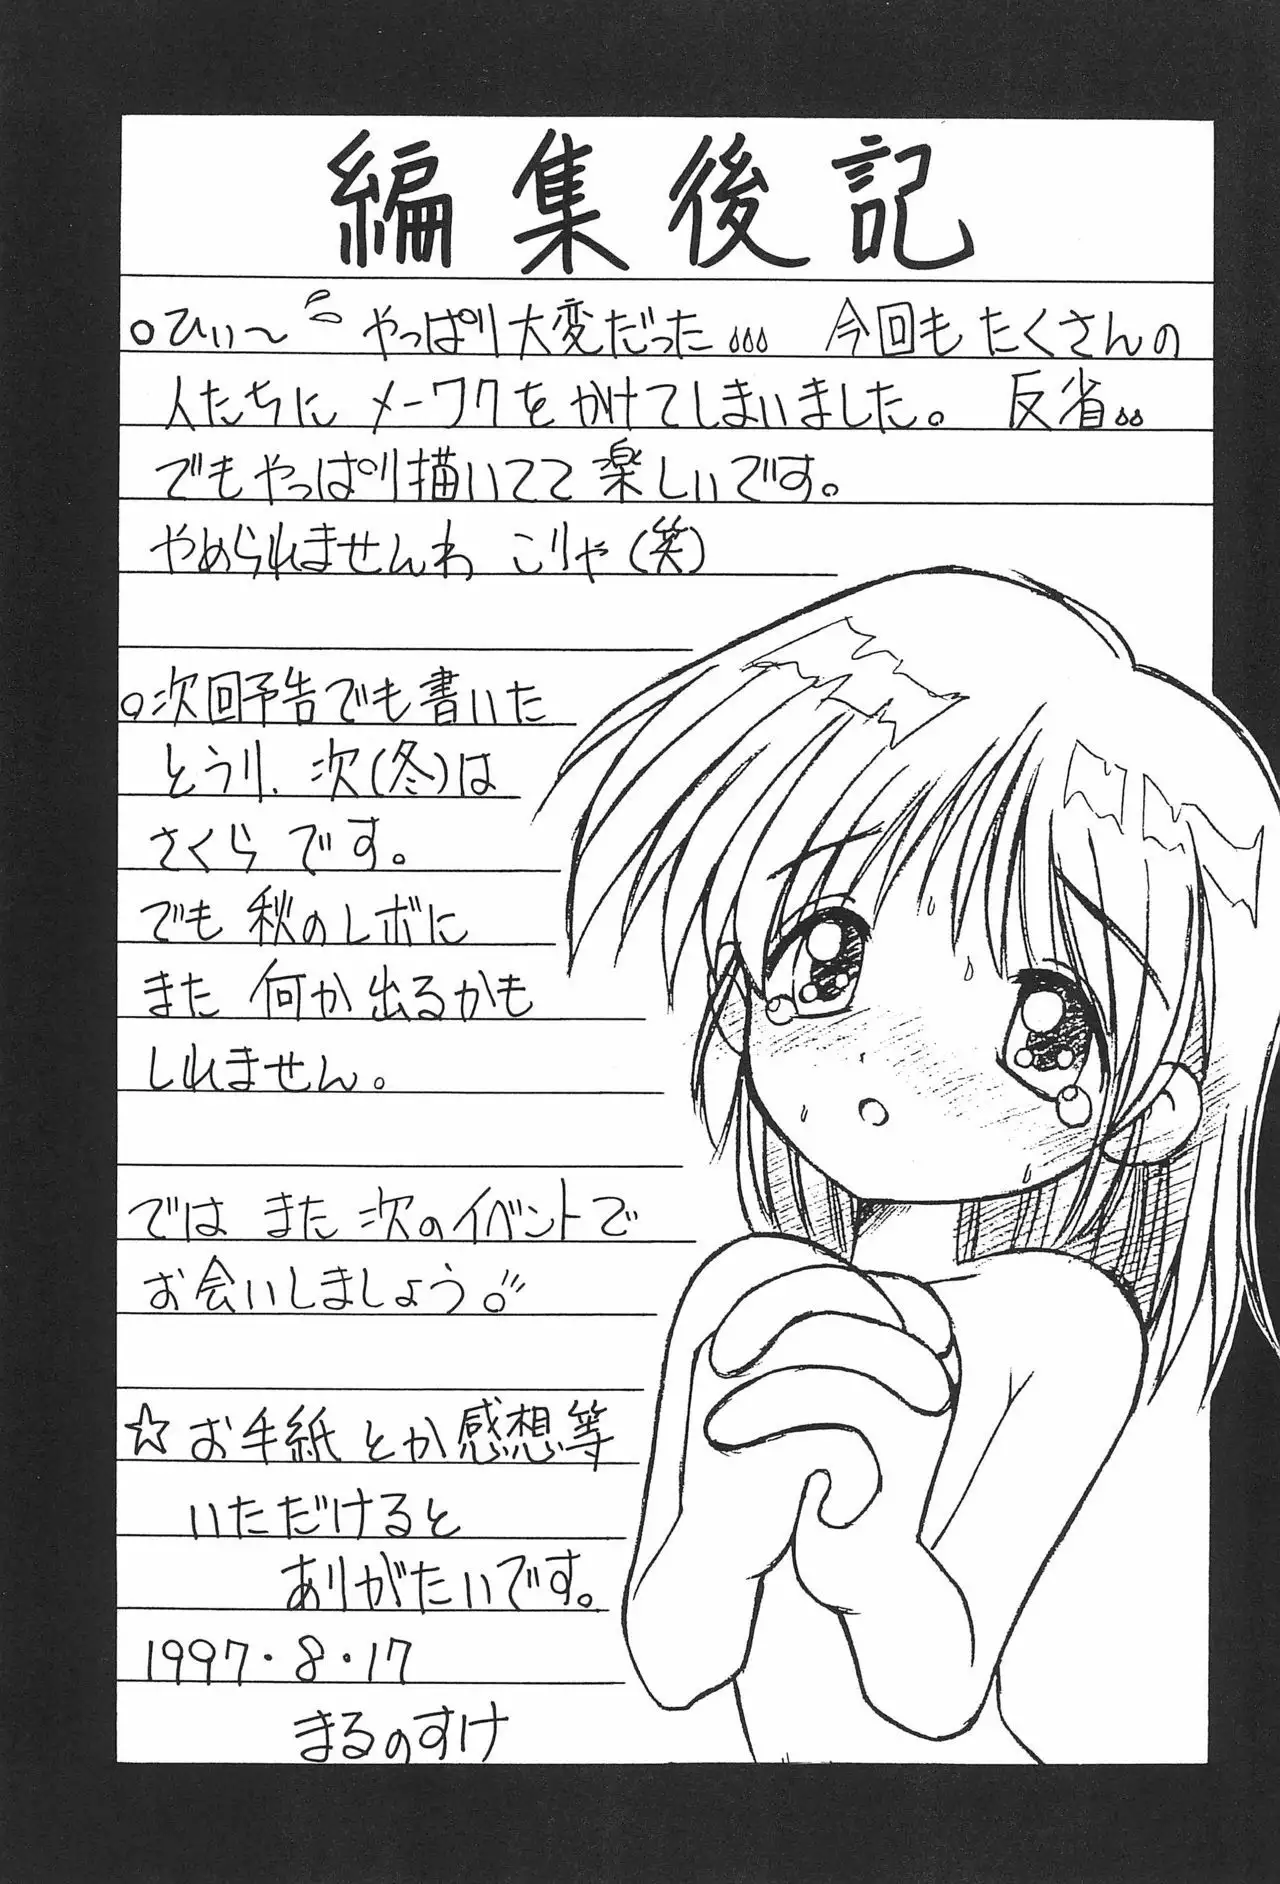 編集後記
○ひぃ～ やっぱり大変だった… 今回もたくさんの
人たちに メーワクを かけてしまいました。 反省…
でもやっぱり描いてて楽しいです。
やめられませんわ こりゃ(笑)
○次回予告でも書いた
とうり、次(冬)は
さくらです。
でも 秋のレボに
また 何か出るかも
しれません。
では また 次のイベントで
お会いしましょう。
☆お手紙とか感想等
いただけると
ありがたいです。
1997・8・17
まるのすけ